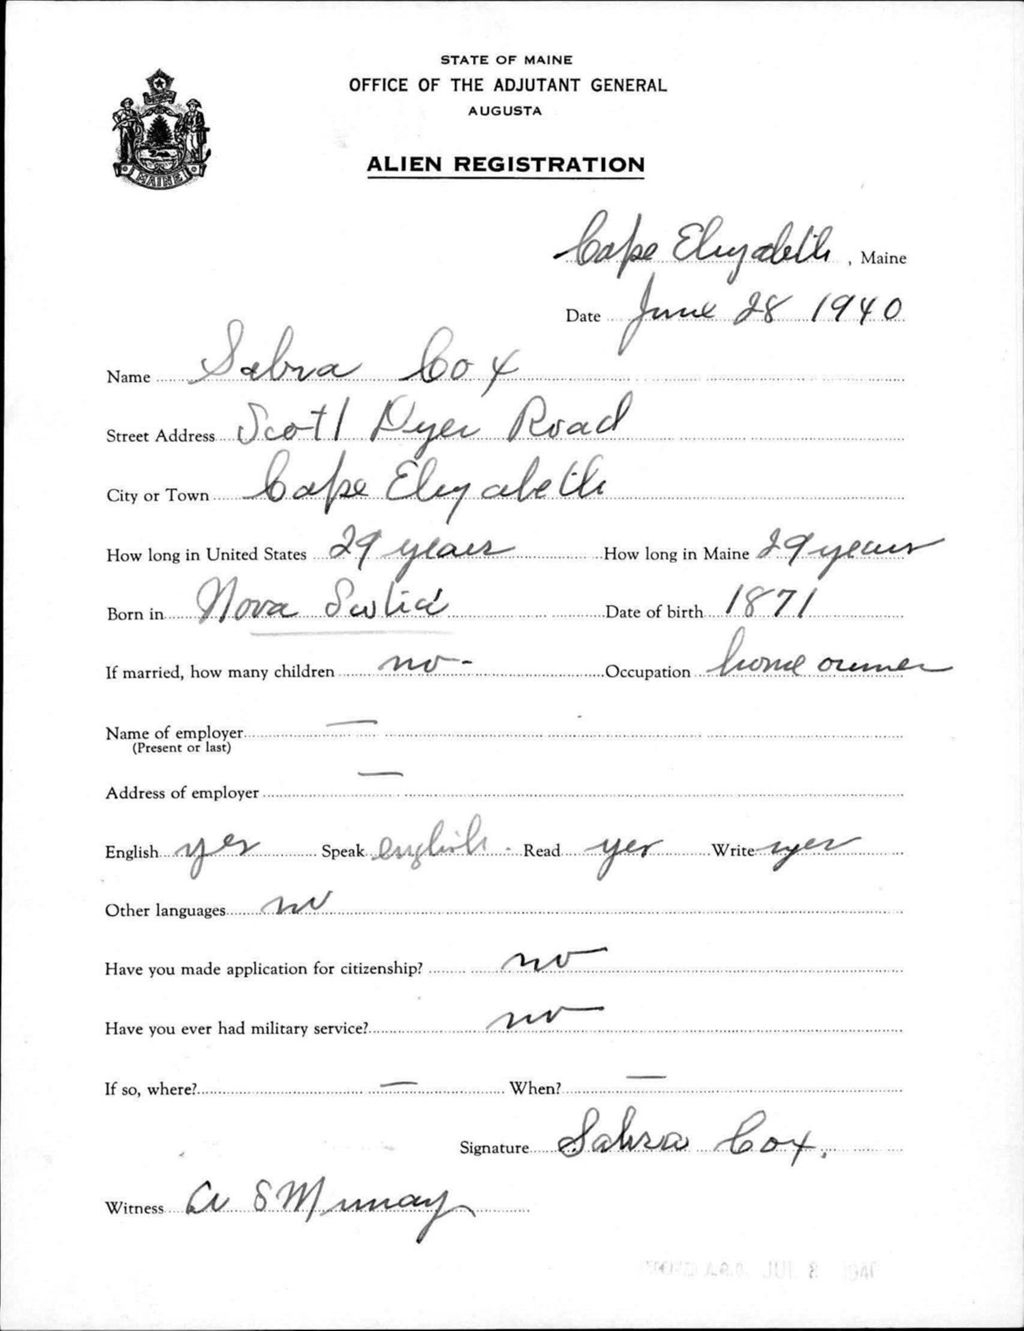 STATE OF MAINE
OFFICE OF THE ADJUTANT GENERAL
AUGUSTA
ALIEN REGISTRATION
MAINE
Cape Elizabeth, Maine
Date June 28 1940
Name Sabra Cox
Street Address Scott Dyer Road
City or Town Cape Elizabeth
How long in United States 29 years How long in Maine 29 years
Born in Nova Scotia Date of birth 1871
If married, how many children no - Occupation home owner
Name of employer —
(Present or last)
Address of employer —
English yes Speak english - Read yes Write yes
Other languages no
Have you made application for citizenship? no
Have you ever had military service? no
If so, where? — When? —
Signature Sabra Cox.
Witness S Murray
A.G.O. JUL